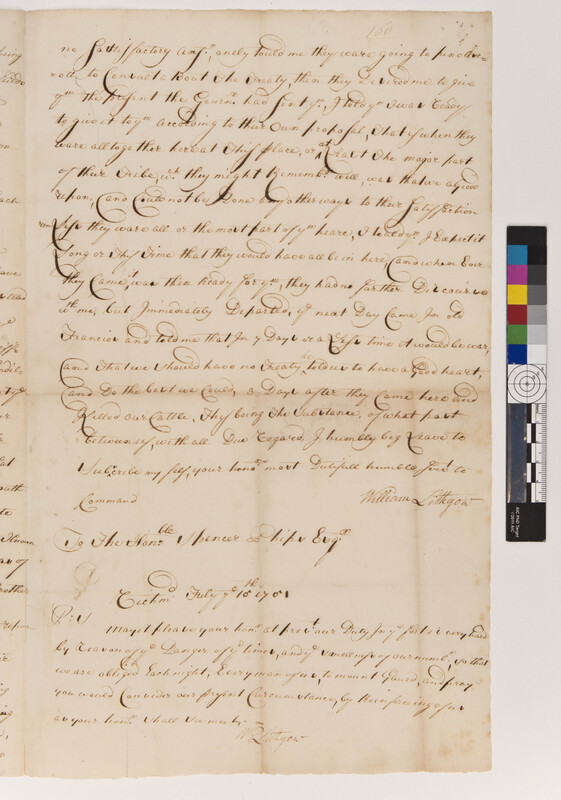 160
no sattisfactory ansr. onely tould me they ware going to penob=
=scott to Consult about the treaty, then they desired me to give
ym the present the Govrnr. had sent ym, I told ym I was ready
to give it to ym according to their own proposal, that is when they
ware all together here at this place, or at Least the major part
of their tribe, wch they might Remembr. well, was that we agreed
upon, and Could not be done any other ways to their satisfaction
unless they ware all or the most part of ym heare, I tould ym I Expected it
Long or this time that they would have all been in here and when Ever
they Came I was then Ready for ym, they had no further Discourse
wth me, but Immediately Departed, ye next Day Came In old
Francies and told me that In 7 Days or a Less time it would be war,
and that we should have no treaty, told us to have a Good heart,
and Do the best we Could, 3 Days after they Came here and
Killed our Cattle, this being the substance, of what past
between us, with all Due regards I humbly beg Leave to
subscribe my self, your honrs. most Dutifull humble servt. to
Command
William Lithgow
To the Honble. Spencer Phips Esqr.
Richmd July ye 15th 1751
P:S
May it please your honr. at prest our Duty In ye fort is very hard
by reason of ye Danger of ye times, and ye smallness of our numbr, so that
we are obliged Each night, Every man of us, to mount Guard, and pray
you would Consider our present Circumstance, by Reinforcing of us
as your honr. shall see meet
Wm Lithgow